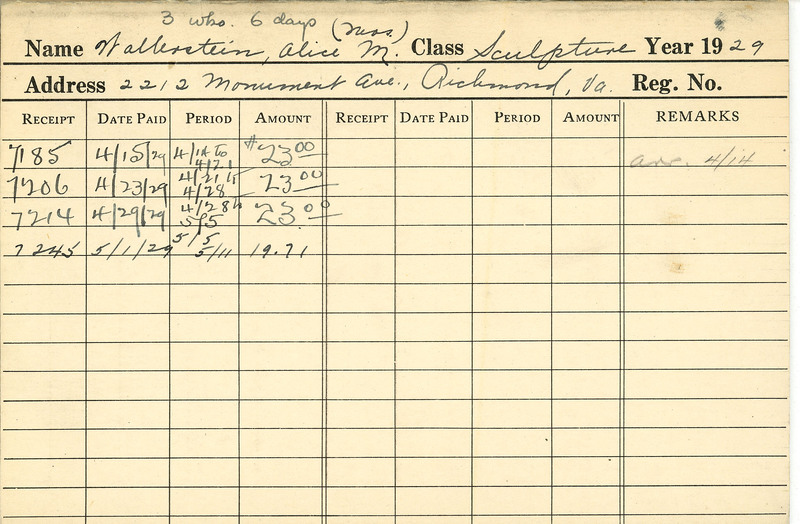 3 wks. 6 days (Mrs.)
Name Wallerstein, Alice M. Class Sculpture Year 1929
Address 2212 Monument Ave., Richmond, Va. Reg. No.
RECEIPT DATE PAID PERIOD AMOUNT RECEIPT DATE PAID PERIOD AMOUNT REMARKS
7185 4/15/29 4/14 to 4/21 #23.00 arr. 4/14
7206 4/23/29 4/21 to 4/28 23.00
7214 4/29/29 4/28 to 5/5 23.00
7245 5/1/29 5/5 5/11 19.71